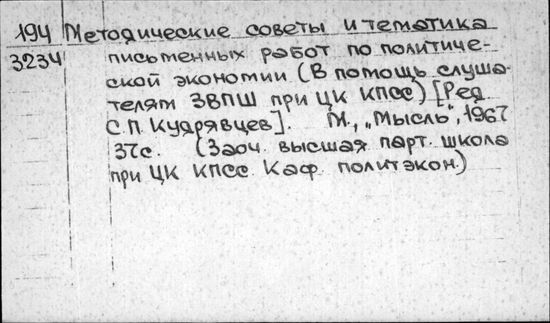 194 Методические советы и тематика
3234 письменных работ по политиче-
ской экономии (В помощь слуша-
телям ЗВПШ при ЦК КПСС) [Ред
С.П. Кудрявцев]. М., „Мысль", 1967
37с. (Заоч. высшая парт. школа
при ЦК КПСС. Каф. политэкон.)